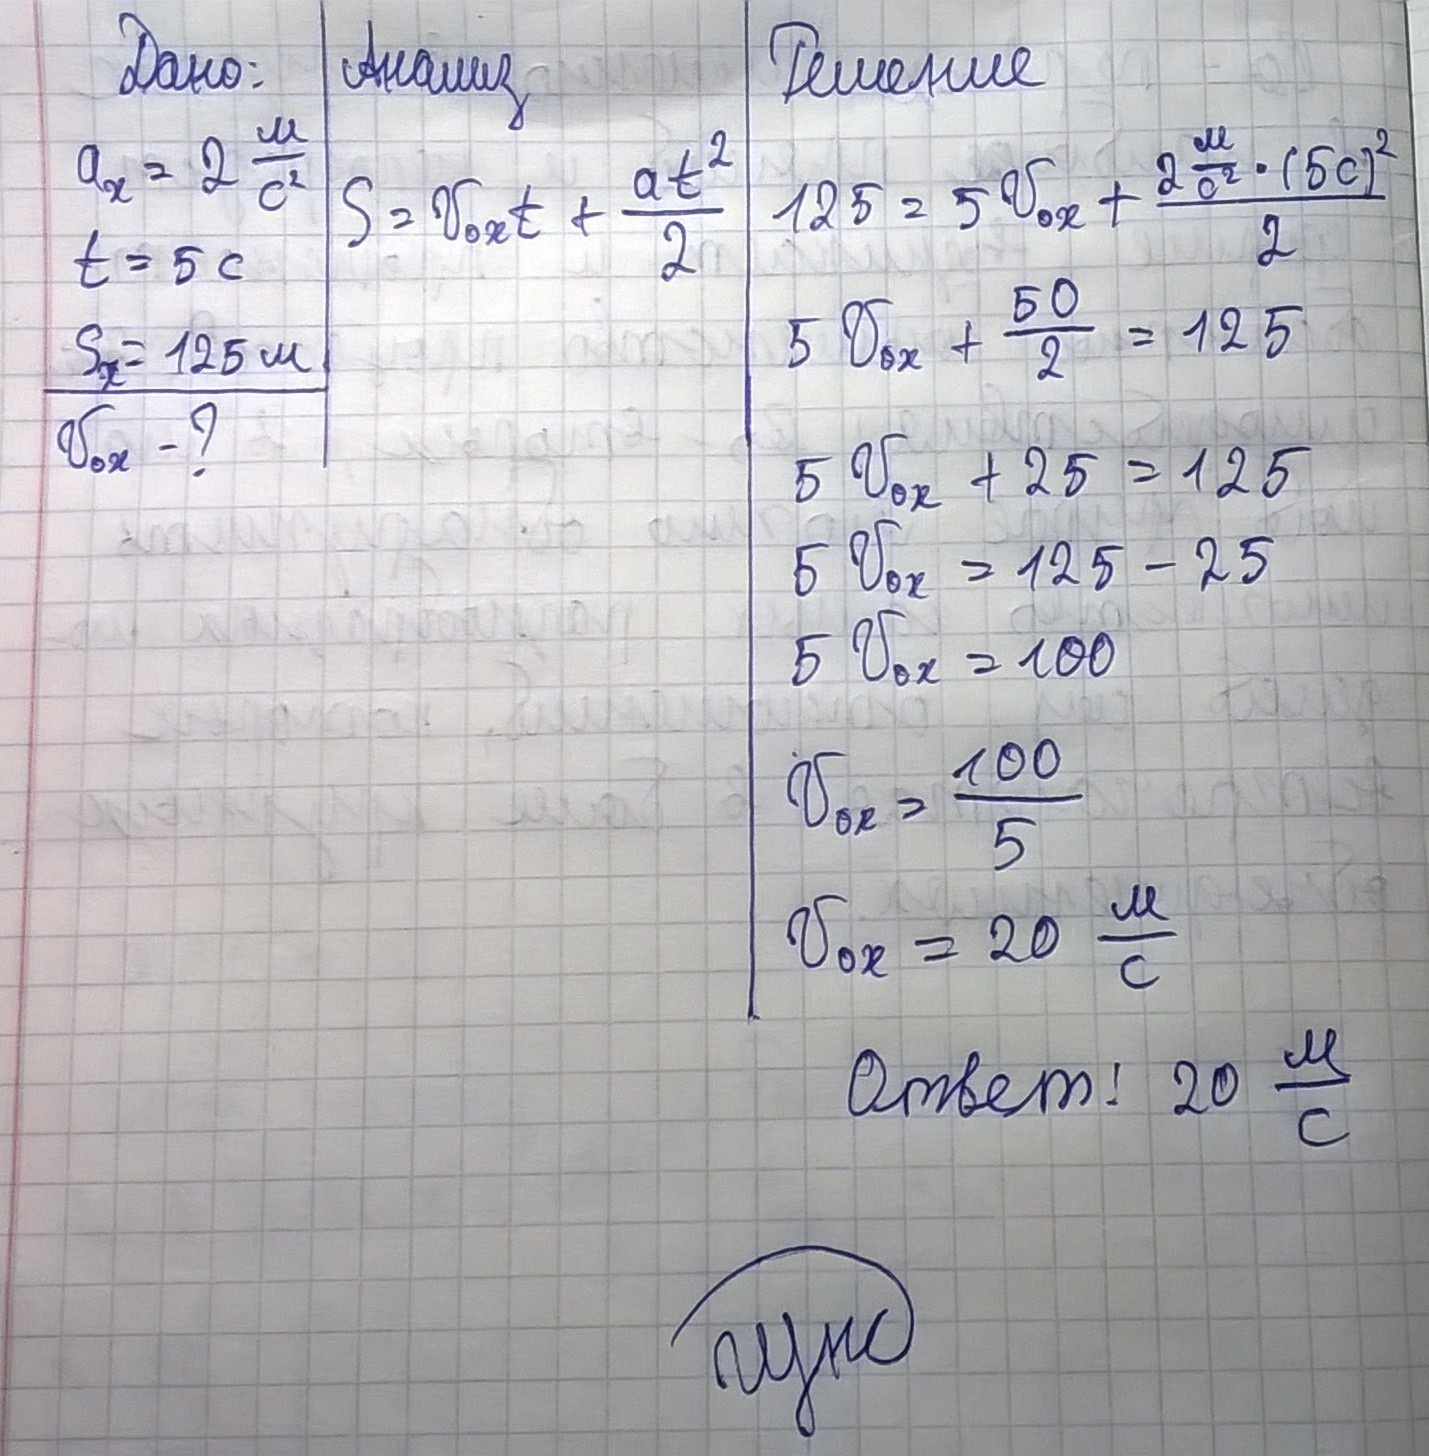 Дано:
aₓ = 2 м/с²
t = 5 с
Sₓ = 125 м
V₀ₓ - ?
Анализ
S = V₀ₓt + at²/2
Решение
125 = 5 V₀ₓ + 2 м/с² · (5с)²/2
5 V₀ₓ + 50/2 = 125
5 V₀ₓ + 25 = 125
5 V₀ₓ = 125 - 25
5 V₀ₓ = 100
V₀ₓ = 100/5
V₀ₓ = 20 м/с
Ответ: 20 м/с